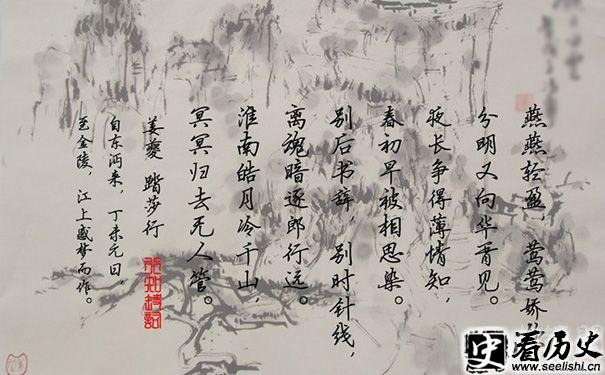 燕燕轻盈，莺莺娇
分明又向华胥见。
夜长争得薄情知，
春初早被相思染。
别后书辞，别时针线，
离魂暗逐郎行远。
淮南皓月冷千山，
冥冥归去无人管。
姜夔 踏莎行
自东沔来，丁未元日，
至金陵，江上感梦而作。
看历史
www.seelishi.cn